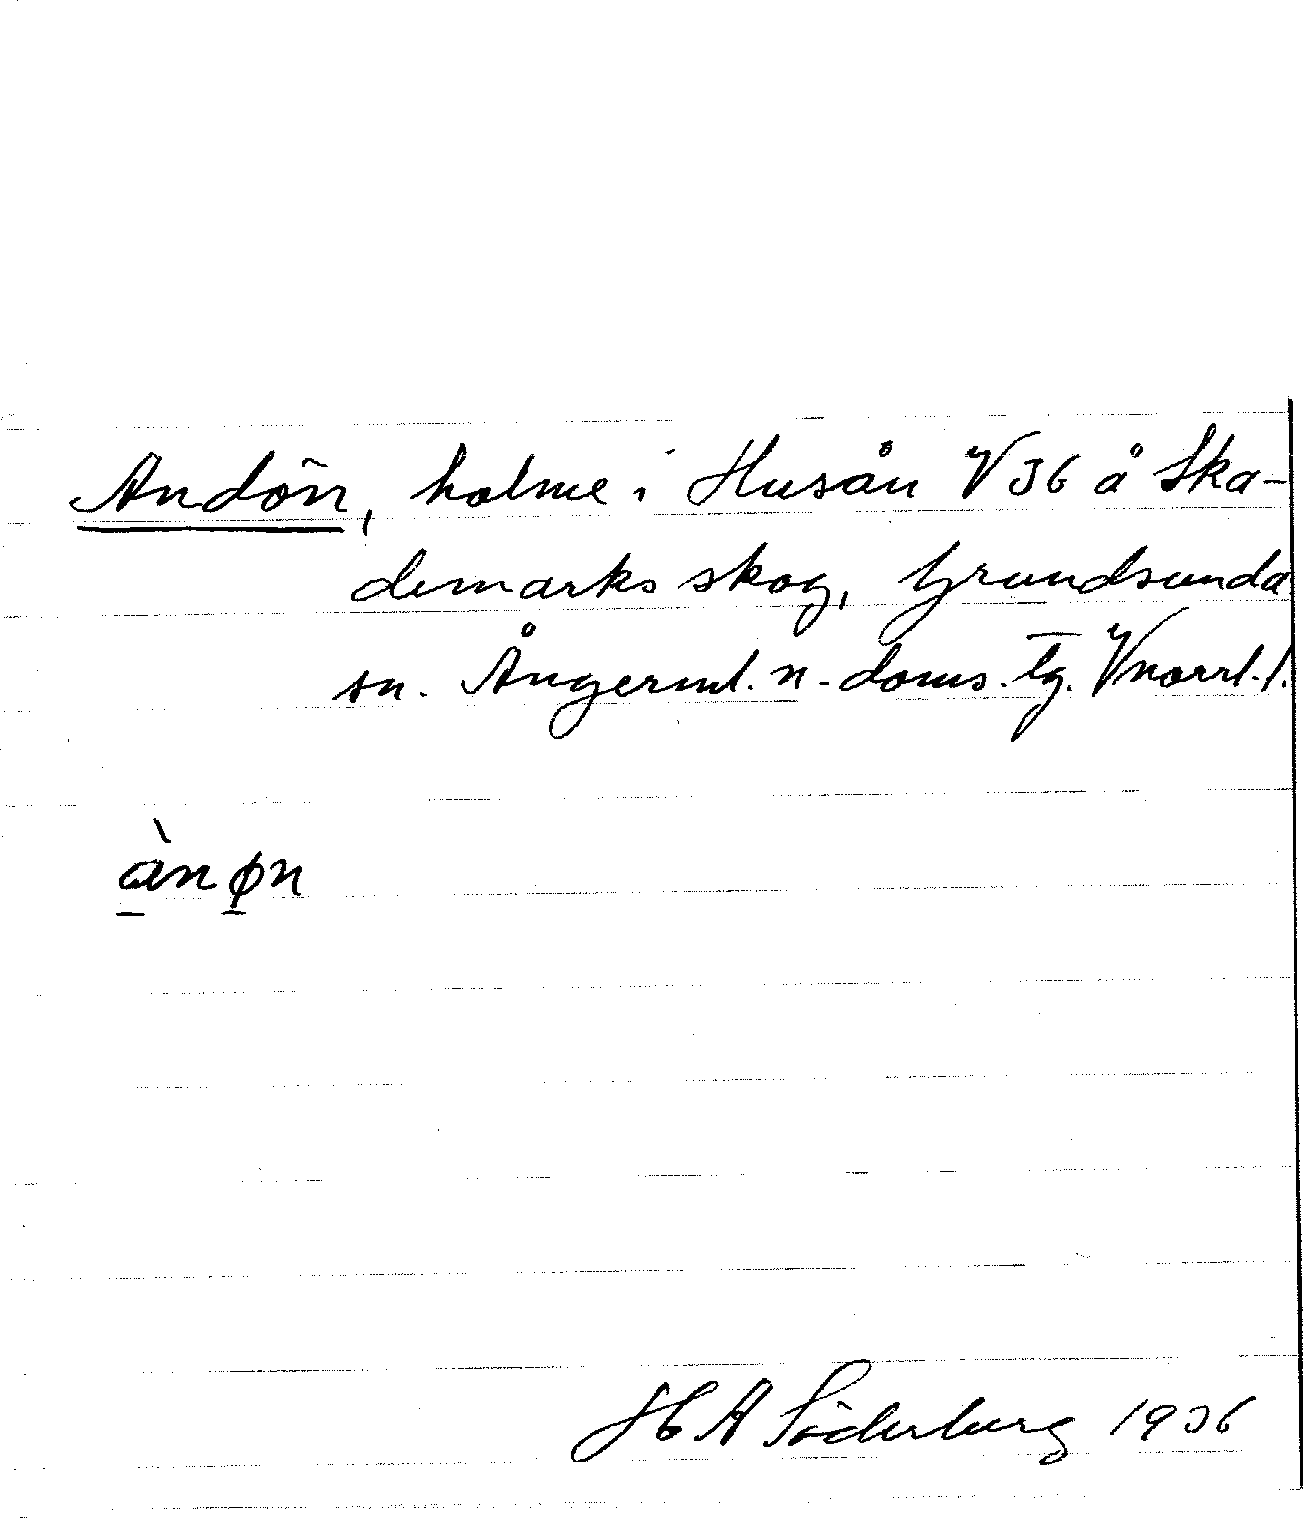 Andön, holme i Husån V36 å Ska-
demarks skog, Grundsunda
sn. Ångerml. n. doms. tg. Vnorrl. l.
ànøn
H A Söderberg 1936